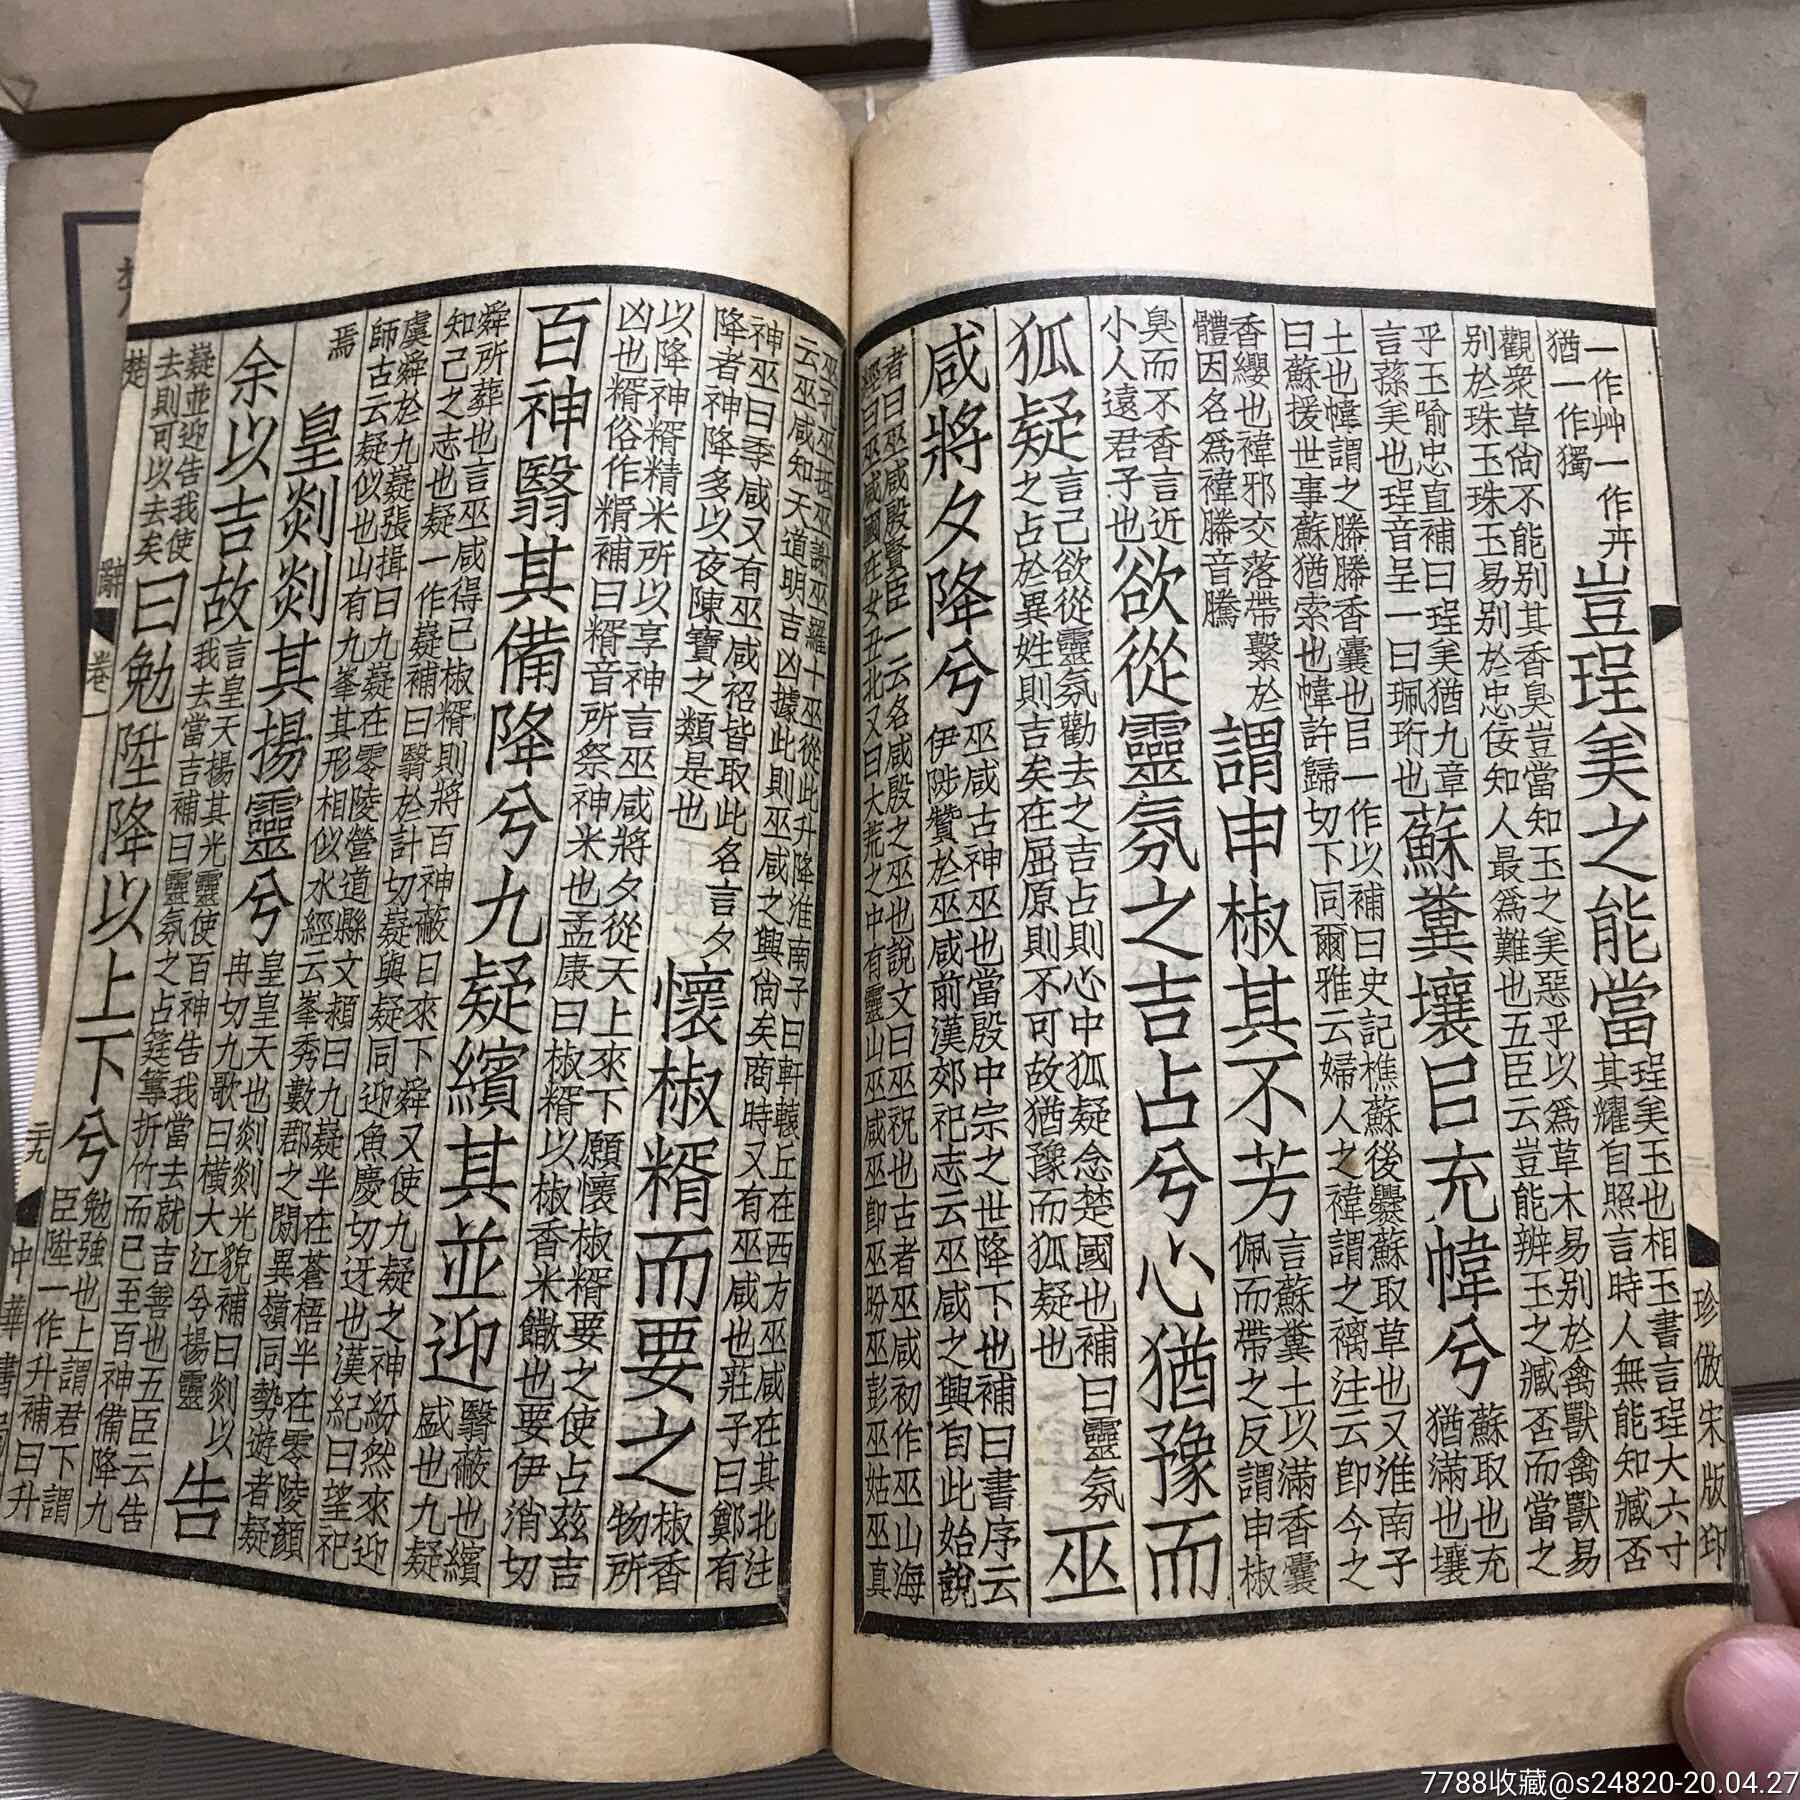 珍倣宋版印
一作艸一作卉
猶一作獨
豈珵美之能當
珵美玉也相玉書言珵大六寸
其耀自照言時人無能知臧否
觀衆草尙不能別其香臭豈當知玉之美惡乎以爲草木易別於禽獸禽獸易
別於珠玉珠玉易別於忠佞知人最爲難也五臣云豈能辨玉之臧否而當之
乎玉喻忠直補曰珵美猶九章
言蓀美也珵音呈一曰珮珩也
蘇糞壤㠯充幃兮
蘇取也充
猶滿也壤
土也幃謂之幐幐香囊也㠯一作以補曰史記樵蘇後爨蘇取草也又淮南子
曰蘇援世事蘇猶索也幃許歸切下同爾雅云婦人之褘謂之褵注云卽今之
香纓也褘邪交落帶繫於
體因名爲褘幐音騰
謂申椒其不芳
言蘇糞土以滿香囊
佩而帶之反謂申椒
臭而不香言近
小人遠君子也
欲從靈氛之吉占兮心猶豫而
狐疑
言己欲從靈氛勸去之吉占則心中狐疑念楚國也補曰靈氛
之占於異姓則吉矣在屈原則不可故猶豫而狐疑也
巫
咸將夕降兮
巫咸古神巫也當殷中宗之世降下也補曰書序云
伊陟贊於巫咸前漢郊祀志云巫咸之興自此始說
者曰巫咸殷賢臣一云名咸殷之巫也說文曰巫祝也古者巫咸初作巫山海
經曰巫咸國在女丑北又曰大荒之中有靈山巫咸巫卽巫盼巫彭巫姑巫真
巫孔巫抵巫謝巫羅十巫從此升降淮南子曰軒轅丘在西方巫咸在其北注
云巫咸知天道明吉凶據此則巫咸之興尙矣商時又有巫咸也莊子曰鄭有
神巫曰季咸又有巫咸祒皆取此名言夕
降者神降多以夜陳寶之類是也
懷椒糈而要之
椒香
物所
以降神糈精米所以享神言巫咸將夕從天上來下願懷椒糈要之使占茲吉
凶也糈俗作補曰糈音所祭神米也孟康曰椒糈以椒香米饊也要伊消切
百神翳其備降兮九疑繽其並迎
翳蔽也繽
盛也九疑
舜所葬也言巫咸得已椒糈則將百神蔽日來下舜又使九疑之神紛然來迎
知己之志也疑一作嶷補曰翳於計切嶷與疑同迎魚慶切迓也漢紀曰望祀
虞舜於九嶷張揖曰九嶷在零陵營道縣文頴曰九嶷半在蒼梧半在零陵顏
師古云疑似也山有九峯其形相似水經云峯秀數郡之閒異嶺同勢遊者疑
焉
皇剡剡其揚靈兮
皇皇天也剡剡光貌補曰剡以
冉切九歌曰橫大江兮揚靈
告
余以吉故
言皇天揚其光靈使百神告我當去就吉善也五臣云告
我去當吉補曰靈氛之占筳篿折竹而已至百神備降九
嶷並迎告我使
去則可以去矣
曰勉陞降以上下兮
勉強也上謂君下謂
臣陞一作升補曰升
楚辭 卷一 二九 中華書局
7788收藏@s24820-20.04.27